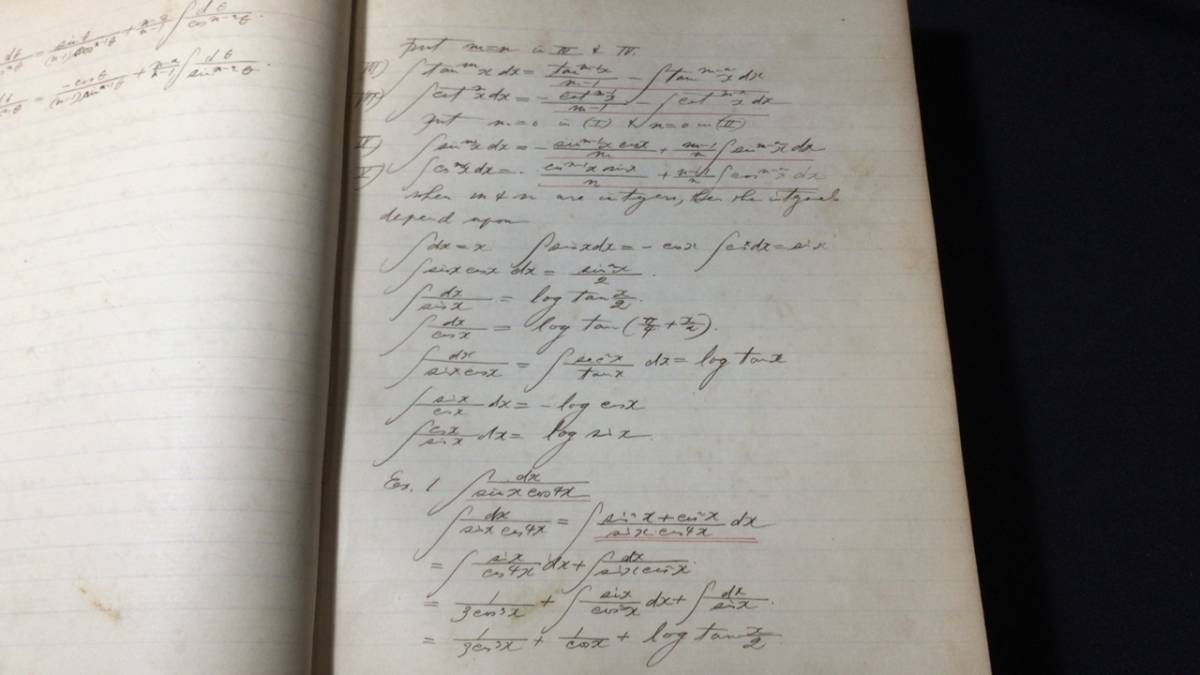 dθ = sinθ/(n-1)cosⁿ⁻¹θ + n-2/n-1 ∫ dθ/cosⁿ⁻²θ.
dθ = -cosθ/(n-1)sinⁿ⁻¹θ + n-2/n-1 ∫ dθ/sinⁿ⁻²θ.
Put m=n in III & IV.
∫tanᵐx dx = tanᵐ⁻¹x/m-1 - ∫tanᵐ⁻²x dx
∫cotᵐx dx = -cotᵐ⁻¹x/m-1 - ∫cotᵐ⁻²x dx
Put n=0 in (I) & m=0 in (II)
∫sinᵐx dx = -sinᵐ⁻¹x cosx/m + m-1/m ∫sinᵐ⁻²x dx
∫cosⁿx dx = cosⁿ⁻¹x sinx/n + n-1/n ∫cosⁿ⁻²x dx
When m & n are integers, then the integrals
depend upon
∫dx = x ∫sinx dx = -cosx ∫cosx dx = sinx
∫sinx cosx dx = sin²x/2.
∫dx/sinx = log tan x/2.
∫dx/cosx = log tan(π/4 + x/2).
∫dx/sinx cosx = ∫sec²x/tanx dx = log tanx
∫sinx/cosx dx = -log cosx
∫cosx/sinx dx = log sinx.
Ex. 1 ∫dx/sinx cos⁴x
∫dx/sinx cos⁴x = ∫sin²x+cos²x/sinx cos⁴x dx
= ∫sinx/cos⁴x dx + ∫dx/sinx cos²x.
= 1/3cos³x + ∫sinx/cos²x dx + ∫dx/sinx.
= 1/3cos³x + 1/cosx + log tan x/2